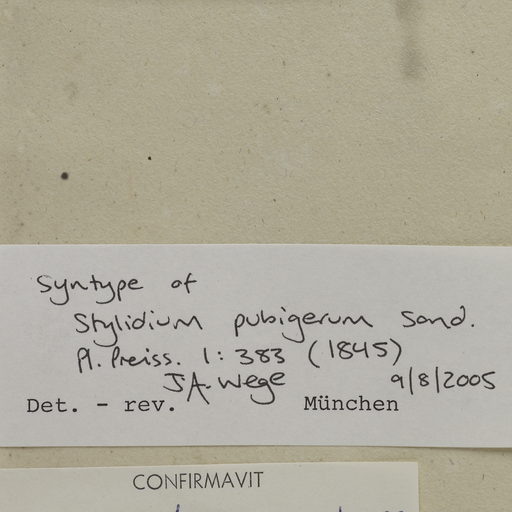 Syntype of
Stylidium pubigerum Sond.
Pl. Preiss. 1: 383 (1845)
J A. Wege 9/8/2005
Det. - rev. München
CONFIRMAVIT